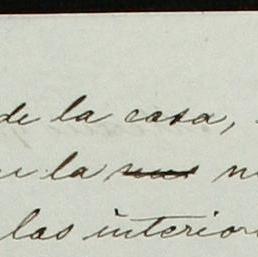 de la casa,
la
las interior